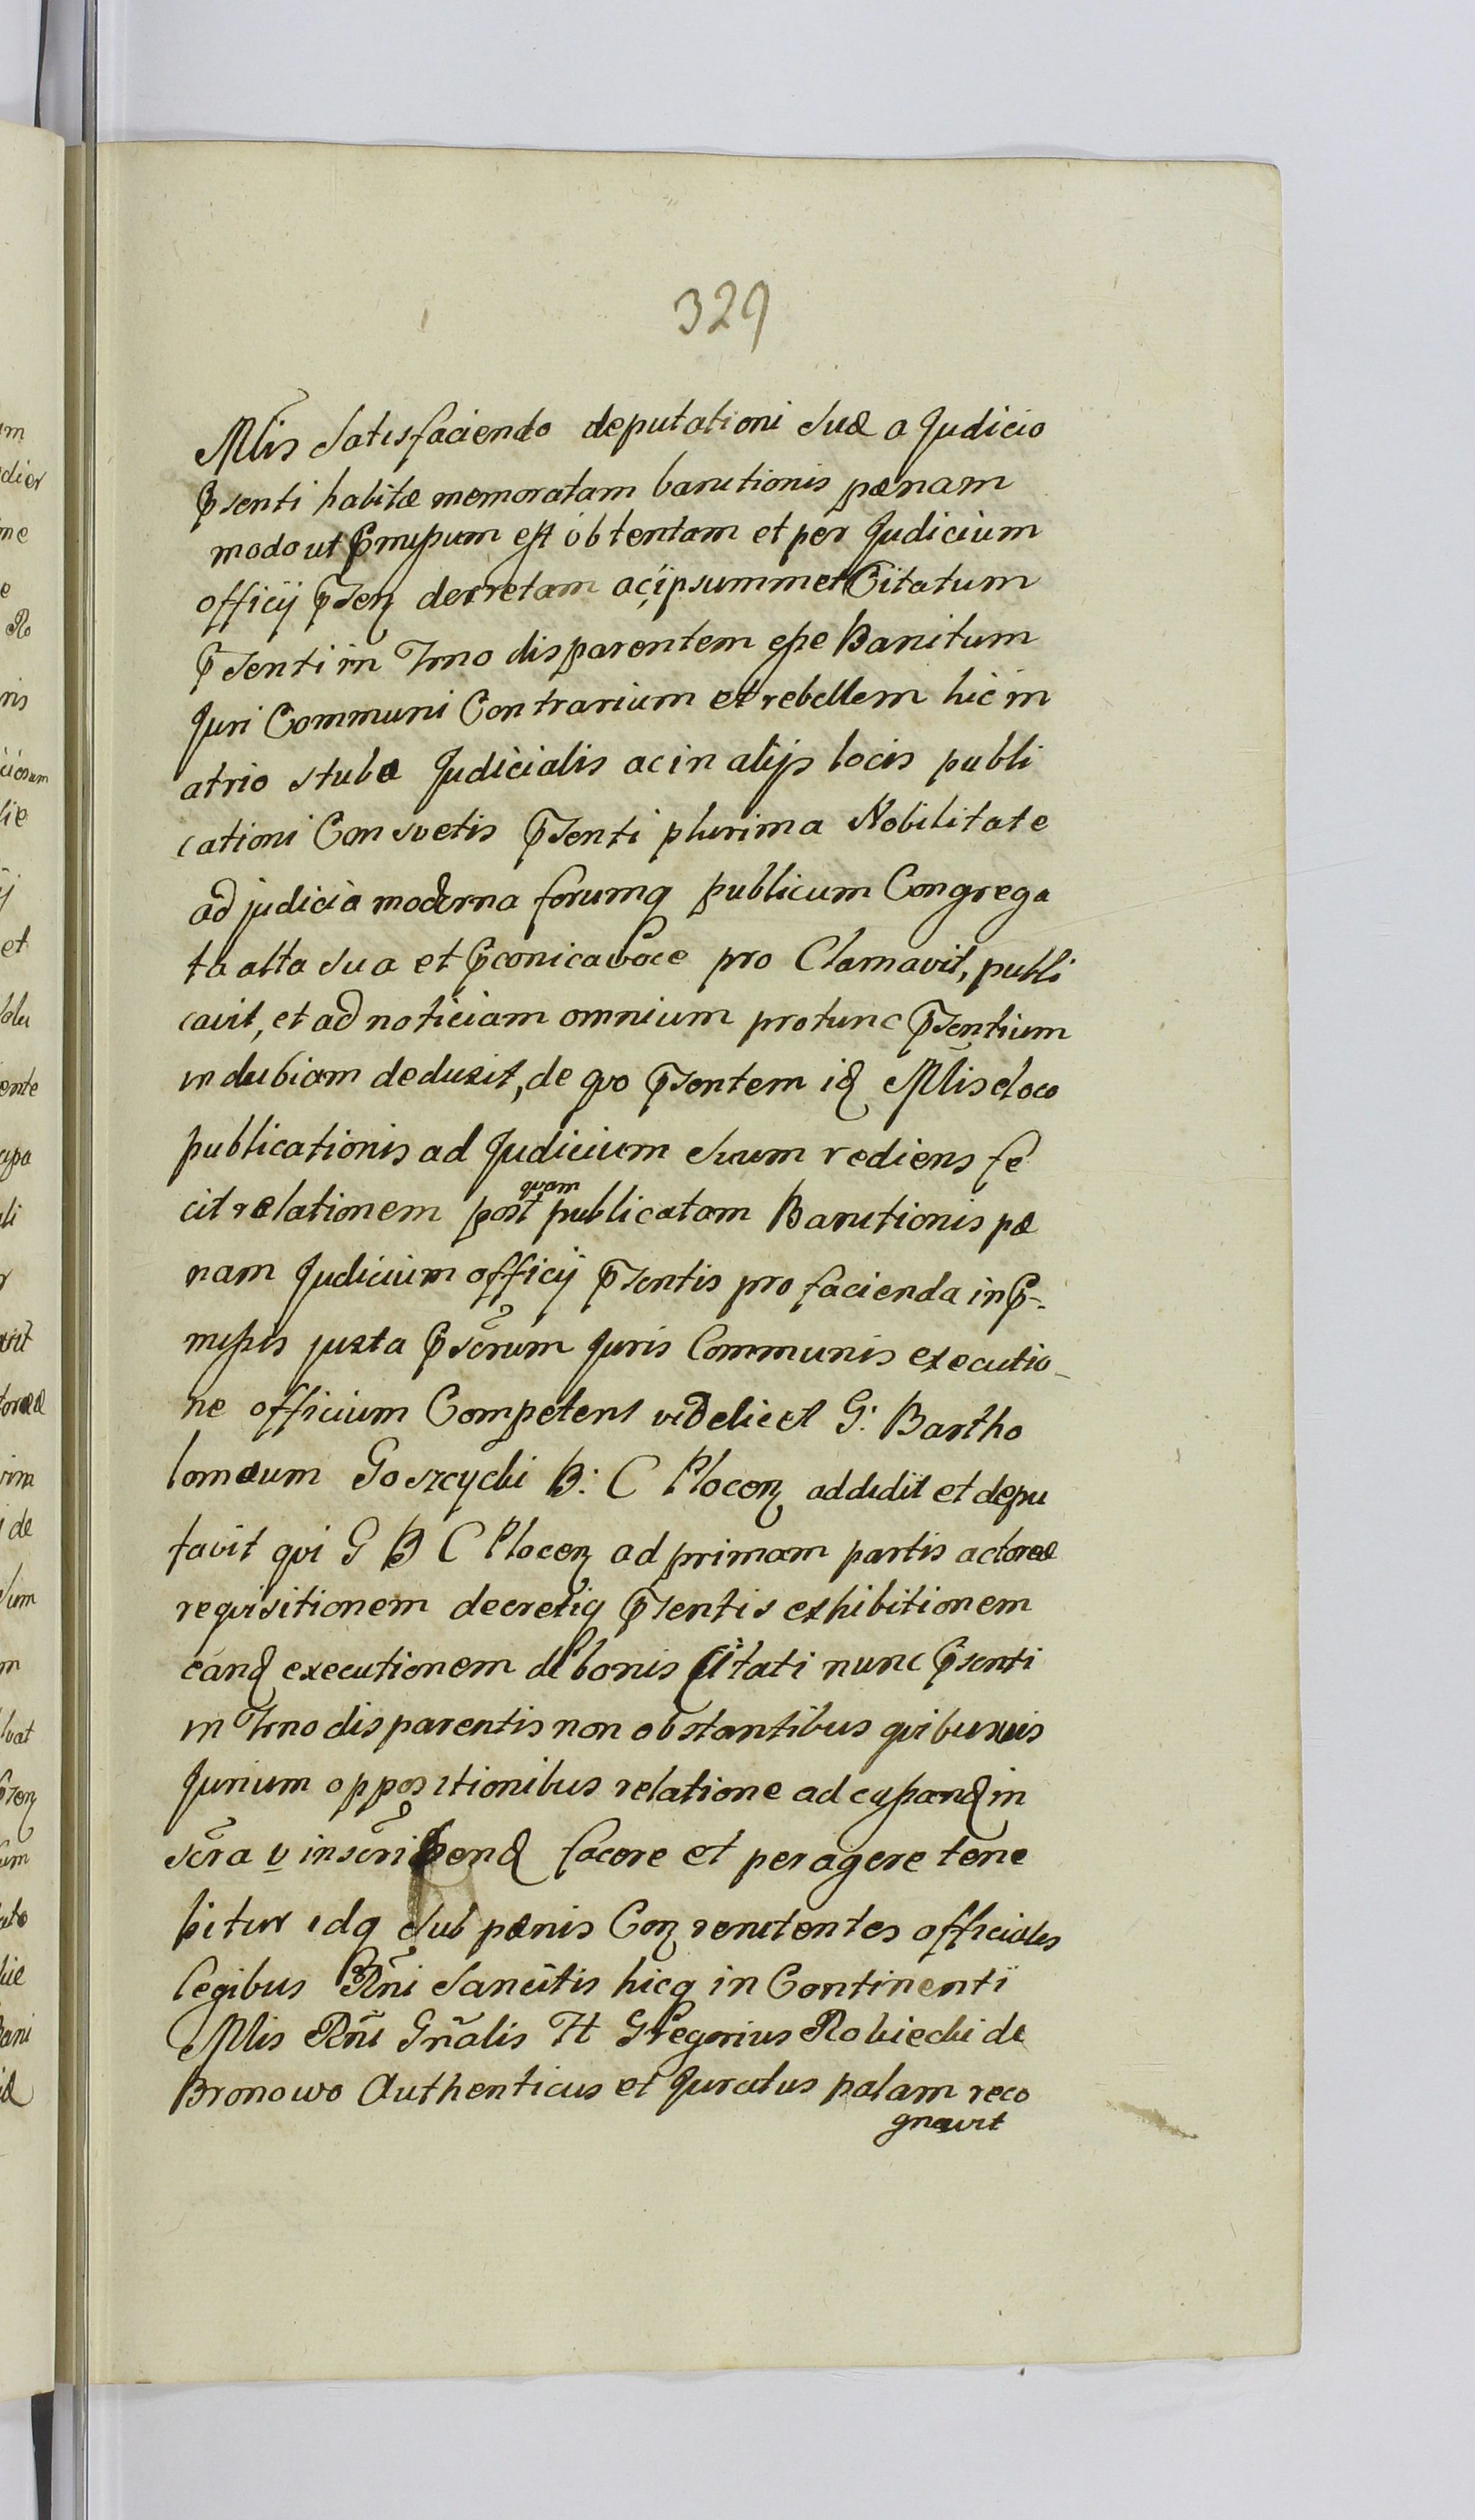 329
Mlis Satisfaciendo deputationi Suæ a Judicio
pſenti habitæ memoratam banitionis pænam
modo ut pmissum est obtentam et per Judicium
officij pſen decretam ac ipsummet Citatum
pſenti in Trno disparentem esse Banitum
Juri Communi Contrarium et rebellem hic in
atrio stubæ Judicialis ac in alijs locis publi
cationi Consvetis pſenti plurima Nobilitate
ad judicia moderna forumq publicum Congrega
ta alta Sua et pconica voce pro Clamavit, publi
cavit, et ad noticiam omnium protunc pſentium
indubiam deduxit, de quo pſentem id Mlis eloco
publicationis ad Judicium Suum rediens fe
cit relationem post quam publicatam Banitionis pæ
nam Judicium officij pſentis pro facienda in p-
missis juxta pscrum Juris Communis executio_
ne officium Competens videlicet G: Bartho
lomæum Goszcycki B: C Plocen addidit et depu
tavit qvi G B C Plocen ad primam partis actoreæ
reqvisitionem decretiq pſentis exhibitionem
eand executionem de bonis Citati nunc pſenti
in Trno disparentis non obstantibus qvibusvis
Jurium oppositionibus relatione ad cussand in
scra v inscribend facere et peragere tene
bitur idq Sub pænis Con renitentes officiales
legibus Rni Sancitis hicq in Continenti
Mlis Rni Gnalis H Gregorius Robiecki de
Bronowo Authenticus et Juratus palam reco
gnovit